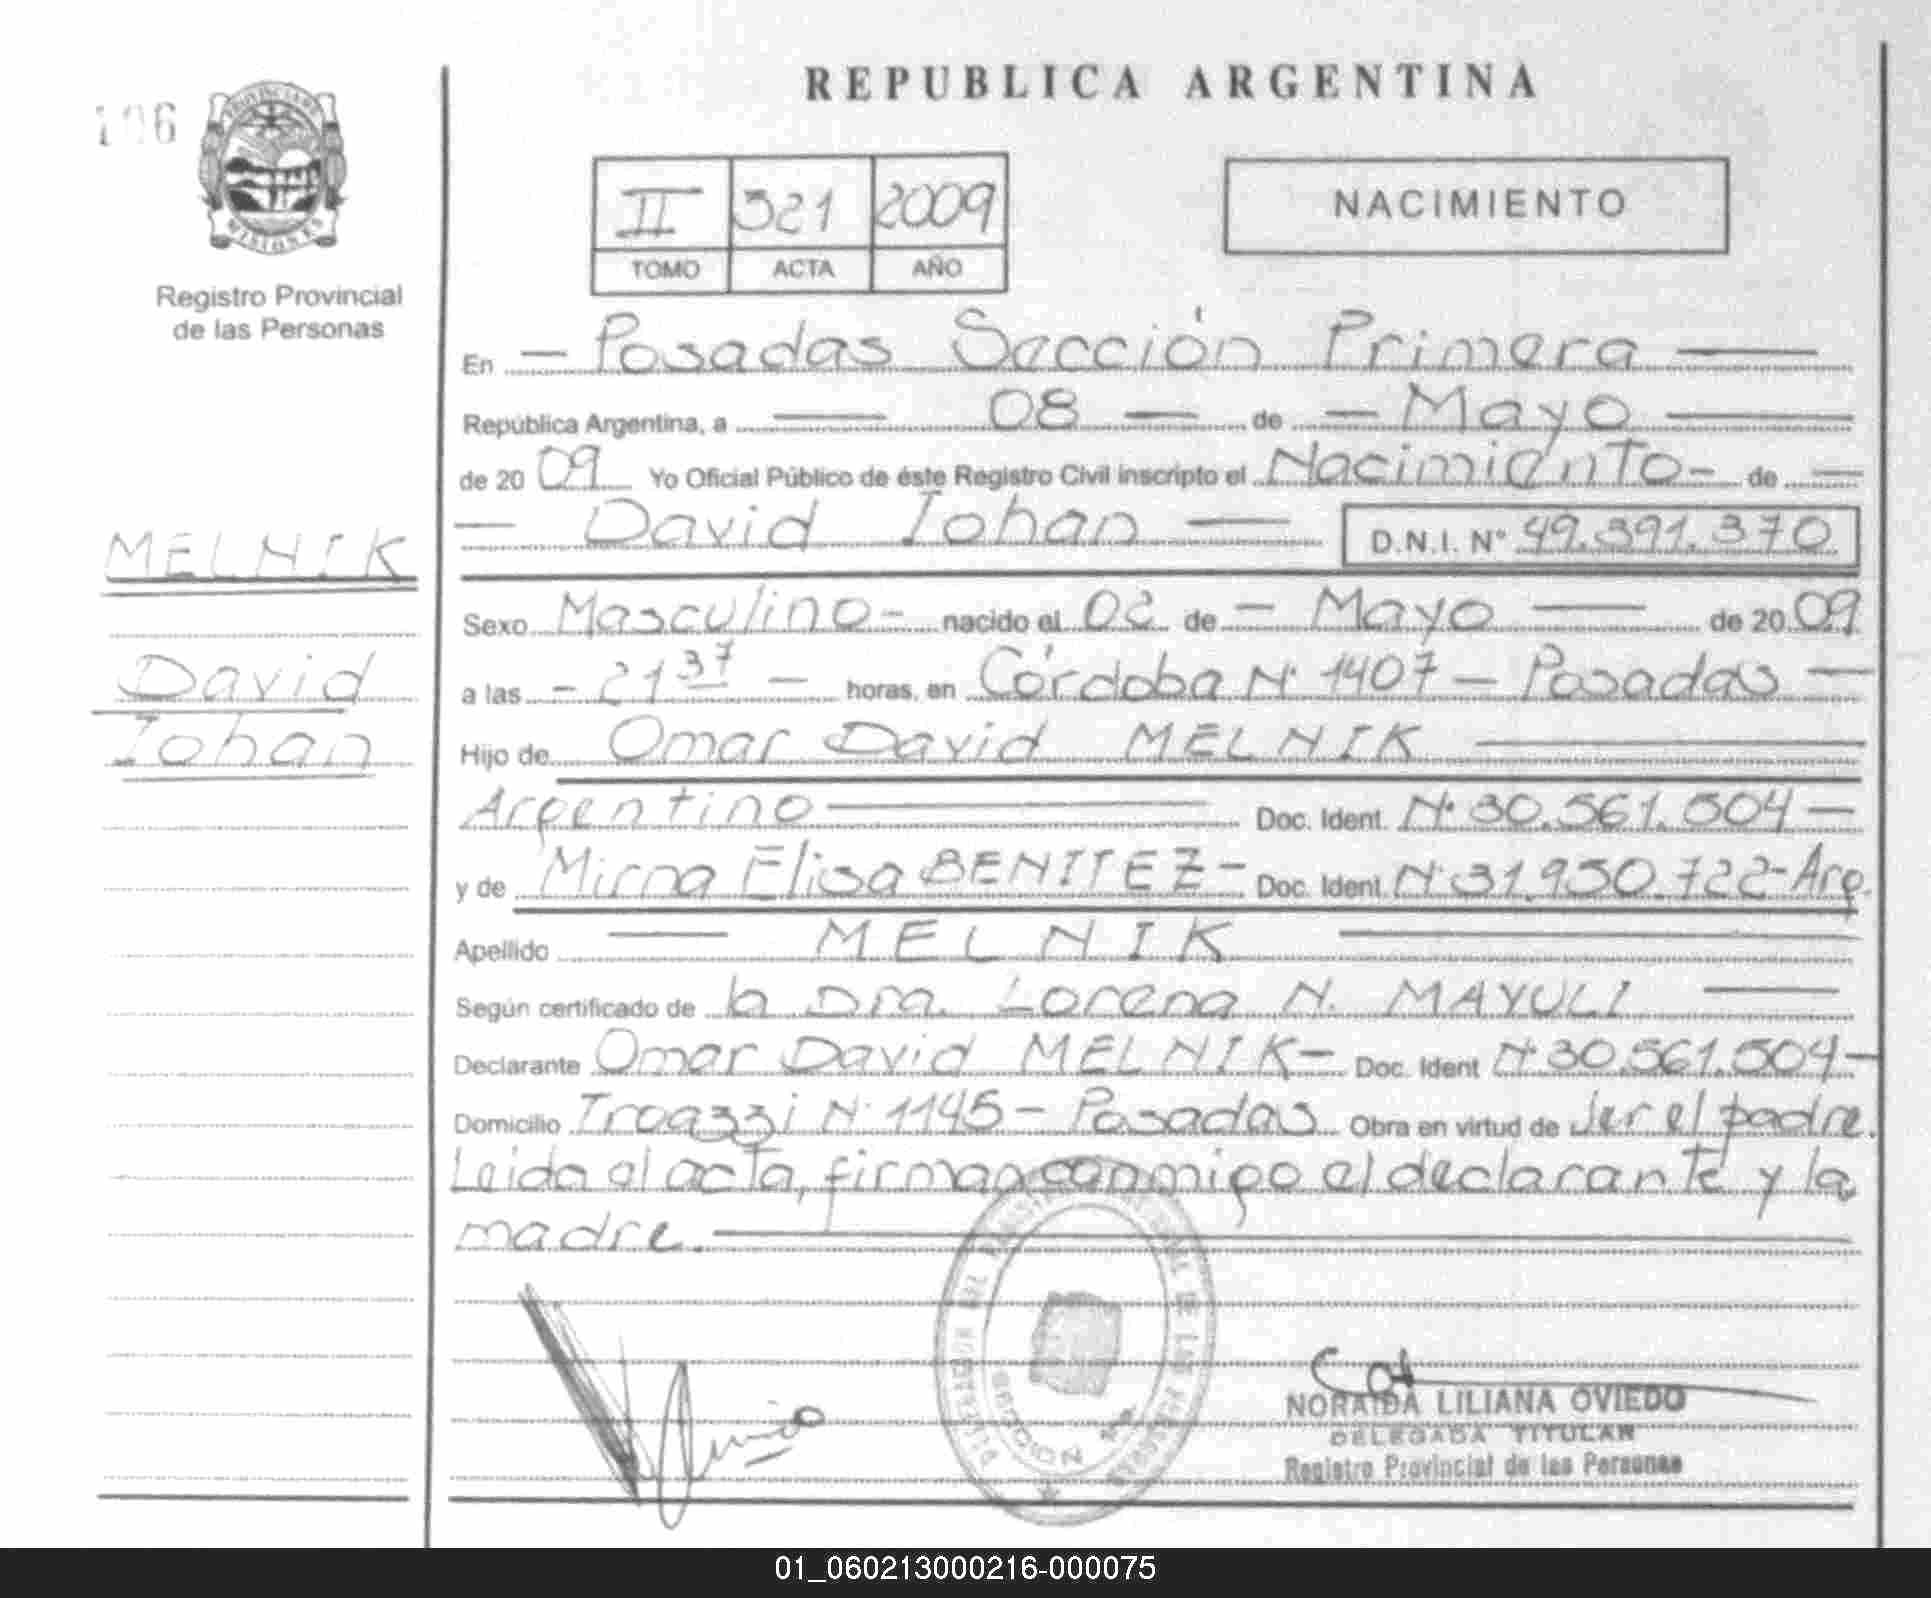 REPUBLICA ARGENTINA
PROVINCIA DE
MISIONES
Registro Provincial
de las Personas
II 321 2009
TOMO ACTA AÑO
NACIMIENTO
En — Posadas Sección Primera —
República Argentina, a — 08 — de — Mayo —
de 2009 Yo Oficial Público de éste Registro Civil inscripto el Nacimiento - de —
— David Iohan — D.N.I. N° 49.391.370
MELNIK
David
Iohan
Sexo Masculino - nacido el 02 de — Mayo — de 2009
a las - 21 37 — horas, en Córdoba N° 1407 — Posadas —
Hijo de Omar David MELNIK —
Argentino — Doc. Ident. N° 30.561.504 —
y de Mirna Elisa BENITEZ - Doc. Ident. N° 31.930.722 - Arg.
Apellido — MELNIK —
Según certificado de la Dra. Lorena N. MAYULI —
Declarante Omar David MELNIK — Doc. Ident N° 30.561.504 —
Domicilio N° 1145 - Posadas Obra en virtud de ser el padre.
Leida el acta, firman conmigo el declarante y la
madre. —
NORAIDA LILIANA OVIEDO
DELEGADA TITULAR
Registro Provincial de las Personas
01_060213000216-000075